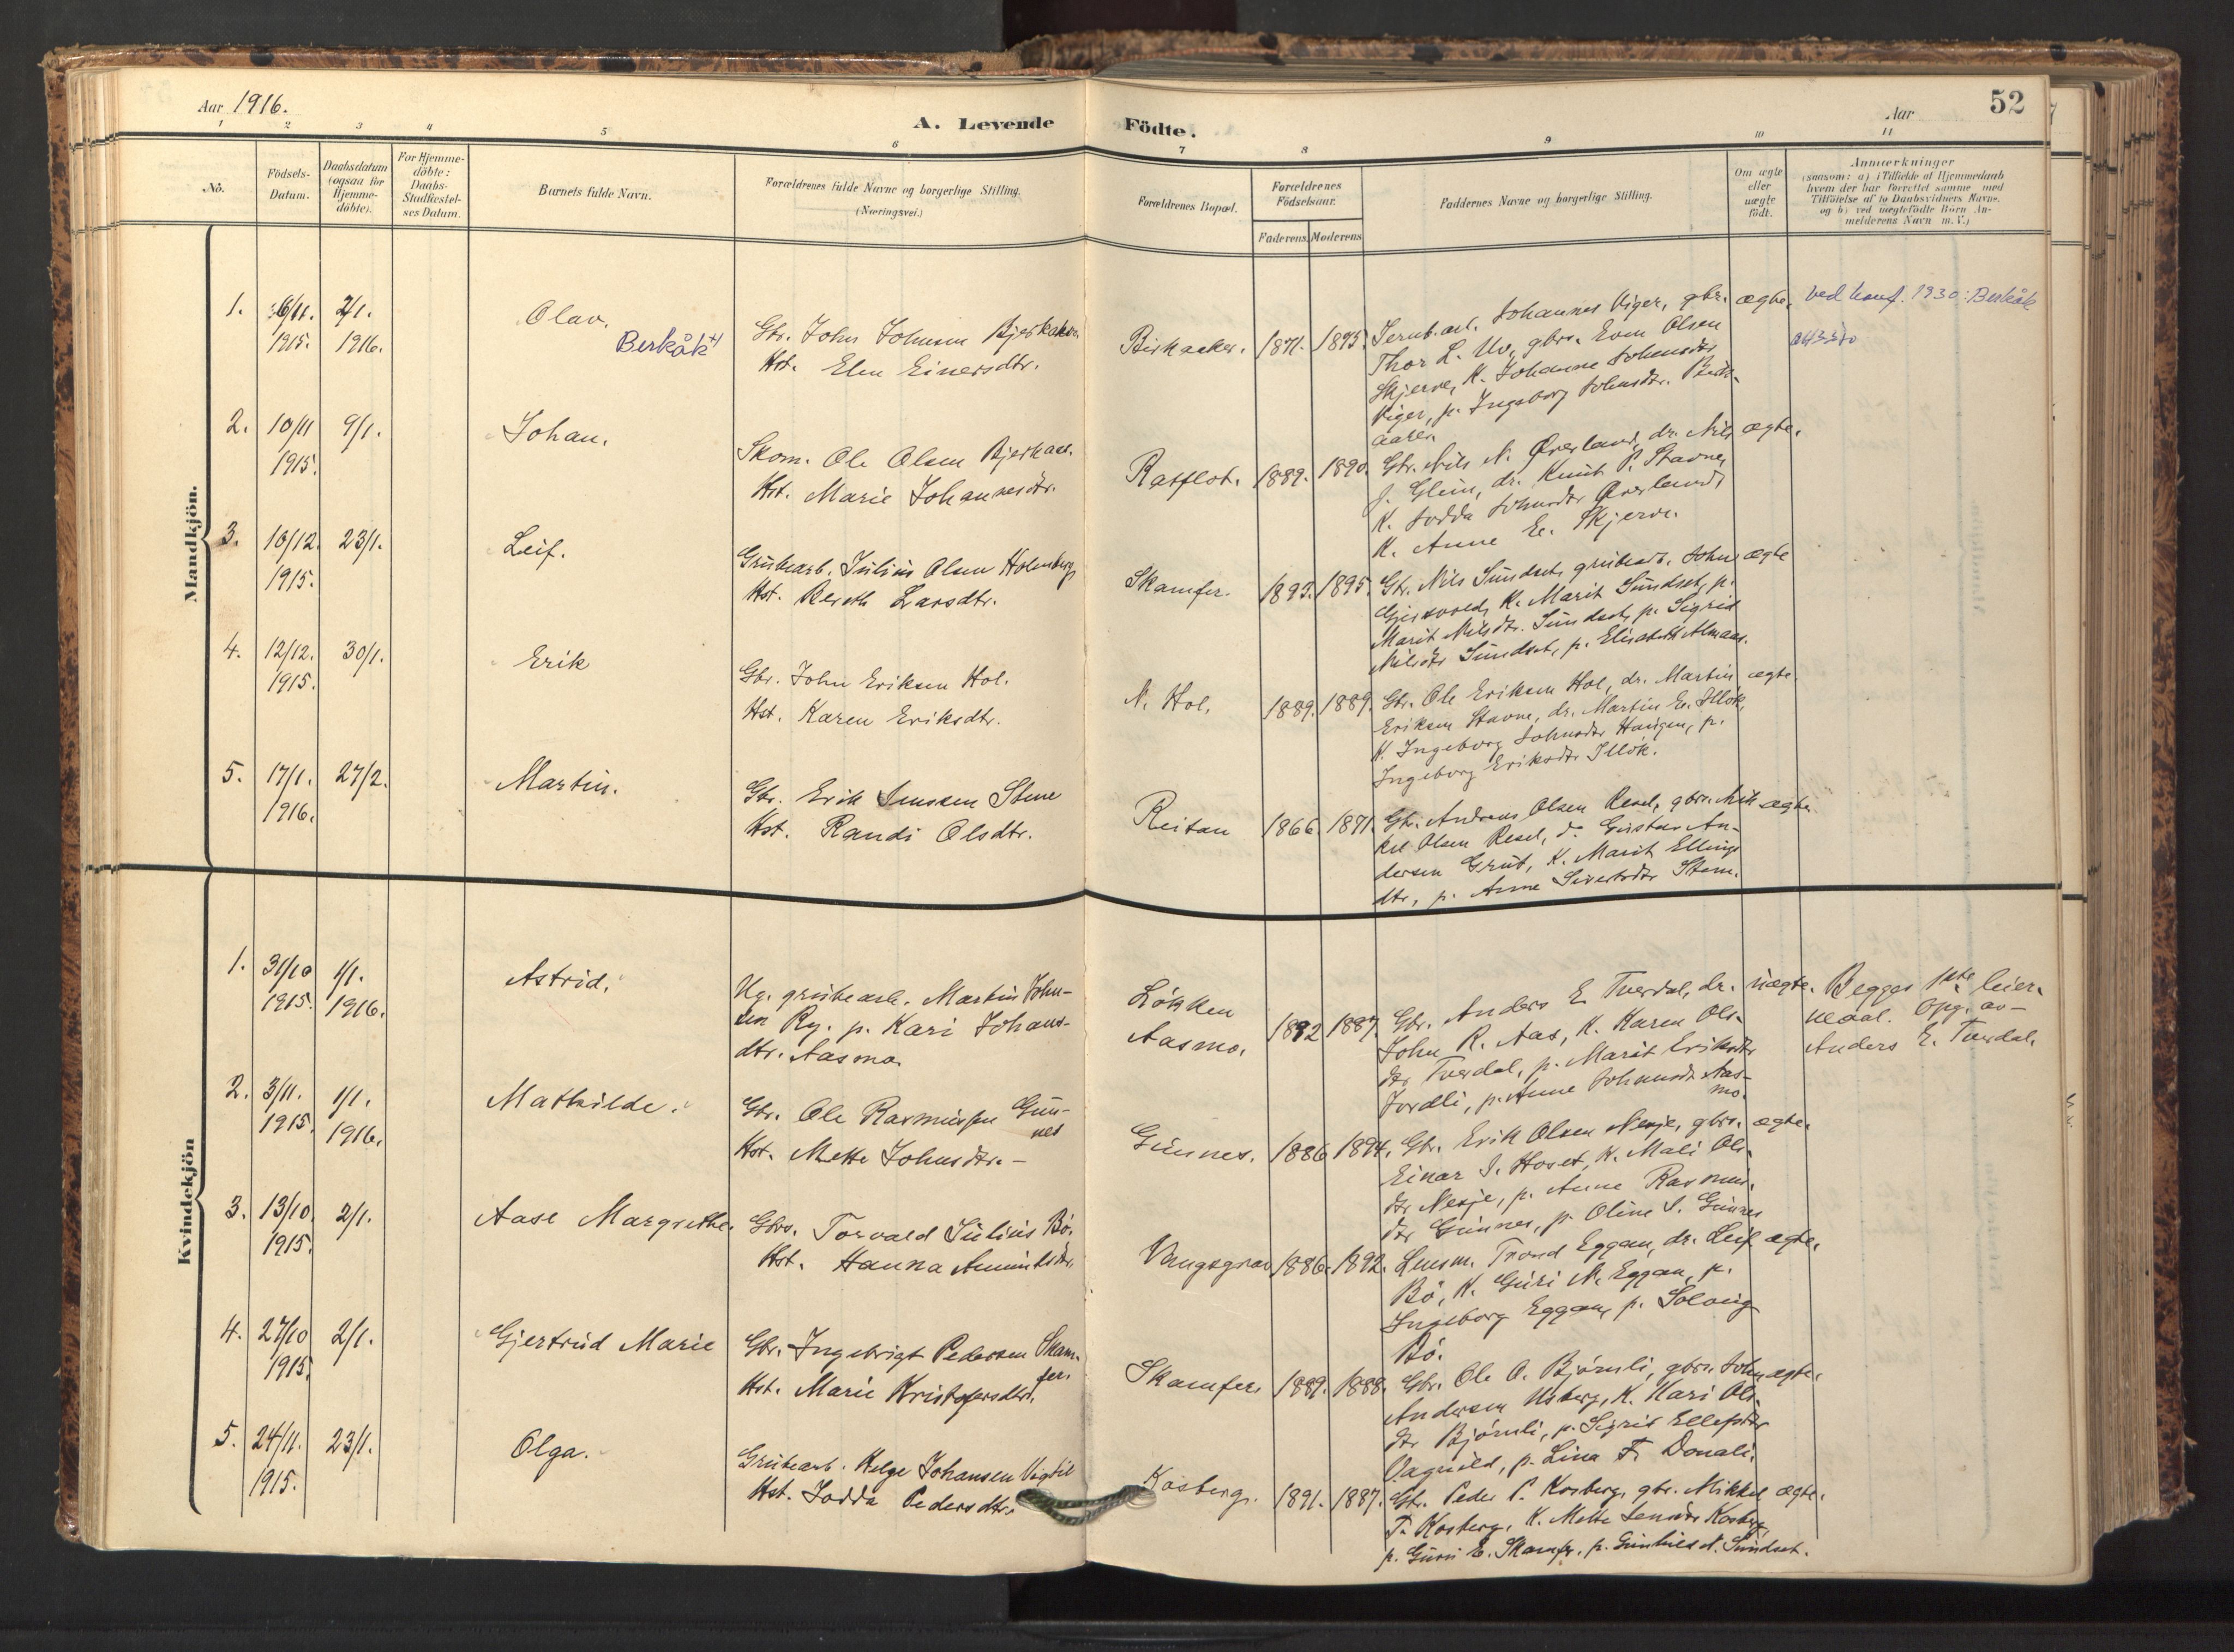 Aar 1916.
A. Levende Födte.
Aar
52
1 2 3 4 5 6 7 8 9 10 11
No.
Födsels-
Datum.
Daabsdatum
(ogsaa for
Hjemme-
döbte).
For Hjemme-
döbte:
Daabs-
Stadfæstel-
ses Datum.
Barnets fulde Navn.
Forældrenes fulde Navne og borgerlige Stilling.
(Næringsvei.)
Forældrenes Bopæl.
Forældrenes
Födselsaar.
Faderens. Moderens
Faddernes Navne og borgerlige Stilling.
Om ægte
eller
uægte
födt.
Anmærkninger
(saasom: a) i Tilfælde af Hjemmedaab
hvem der har forrettet samme med
Tilföielse af to Daabsvidners Navne,
og b) ved uægtefödte Börn An-
melderens Navn m. V.)
Mandkjön.
1.
1915.
2/1.
1916.
Olav.
Berkåk
Gbr. John Johnsen
Hst. Elen Einersdtr.
Birkaaker.
1871.
1875.
Johannes Viger, gbr.
Thor L. Uv, gbrs. Even Olsen
Skjerve, K. Johanne Johnsdtr
Viger, p. Ingeborg Johnsdtr. Birk-
aaker.
ægte.
Ved konf. 1930: Berkåk
2.
10/11
1915.
9/1.
Johan.
Skom. Ole Olsen
Hst. Marie Johannesdtr.
Ratflot.
1889.
1890.
Gbr. Nils N. Øverland, dr. Nils
J. Glein, dr. Knut P. Stavne,
K. Jodda Johnsdtr Øverland,
K. Anne E. Skjerve.
ægte.
3.
16/12.
1915.
23/1.
Leif.
Grubearb. Julius Olsen Holenberg
Hst. Bereth Larsdtr.
Skamfer.
1893.
1895.
Gbr. Nils Sundset, grubearb. John
K. Marit Sundset, p.
Marit Nilsdtr. Sundset, p. Sigrid
Nilsdtr Sundset, p. Elisabeth Almaas.
ægte
4.
12/12.
1915.
30/1.
Erik
Gbr. John Eriksen Hol.
Hst. Karen Eriksdtr.
N. Hol.
1889.
1889.
Gbr. Ole Eriksen Hol, dr. Martin
Eriksen Stavne, dr. Martin E. Illøk,
K. Ingeborg Johnsdtr Haugen, p.
Ingeborg Eriksdtr Illøk.
ægte.
5.
17/1.
1916.
27/2.
Martin.
Gbr. Erik Jenssen Stene
Hst. Randi Olsdtr.
Reitan
1866.
1871.
Gbr. Andreas Olsen Resel, gbrs. Mik-
kel Olsen Resel, d. Gustav An-
dersen Grut, K. Marit Ellings-
dtr, p. Anne Sivertsdtr Stene.
ægte.
Kvindekjön
1.
31/10
1915.
1/1.
1916.
Astrid.
Ug. grubearb. Martin John-
sen Ry. p. Kari Johans-
dtr. Aasmo.
Lökken
Aasmo.
1892
1887.
Gbr. Anders E. Tverdal, dr.
John R. Aas, K. Karen Ols-
dtr Tverdal, p. Marit Eriksdtr
Jordli, p. Anne Johnsdtr Aas-
mo.
uægte.
Begges 1ste leier-
maal. Opg. av
Anders E. Tverdal.
2.
3/11.
1915.
1/1.
1916.
Mathilde.
Gbr. Ole Rasmussen Gun-
nes
Hst. Mette Johnsdtr.
Gunnes.
1886
1894.
Gbr. Erik Olsen Nesje, gbrs.
Einar J. Hoset, K. Mali Ols-
dtr Nesje, p. Anne Rasmus-
dtr Gunnes, p. Oline J. Gunnes
ægte.
3.
13/10.
1915.
2/1.
Aase Margrethe.
Gbrs. Torvald Julius Bö.
Hst. Hanna
Vangsgrav
1886.
1892.
Lensm. Trond Eggan, dr. Leif
Bö, K. Guri M. Eggan, p.
Ingeborg Eggan, p. Solveig
Bö.
ægte.
4.
27/10
1915.
2/1.
Gjertrud Marie
Gbr. Ingebrigt Pedersen Skam-
fer.
Hst. Marie Kristofersdtr.
Skamfer.
1889.
1888.
Gbr. Ole O. Bjørnli, gbrs. John
Andersen Usberg, K. Kari Ols-
dtr Bjørnli, p. Sigrid Ellefsdtr
p. Lina F. Donali.
ægte.
5.
24/11.
1915.
23/1.
Olga.
Grubearb. Helge Johansen
Hst. Jodda Pedersdtr.
Kosberg.
1891.
1887.
Gbr. Peder P. Kosberg, gbr. Mikkel
T. Kosberg, K. Mette Jensdtr Kosberg,
p. Guri E. Skamfer, p. Gunhild N. Sundset.
ægte.